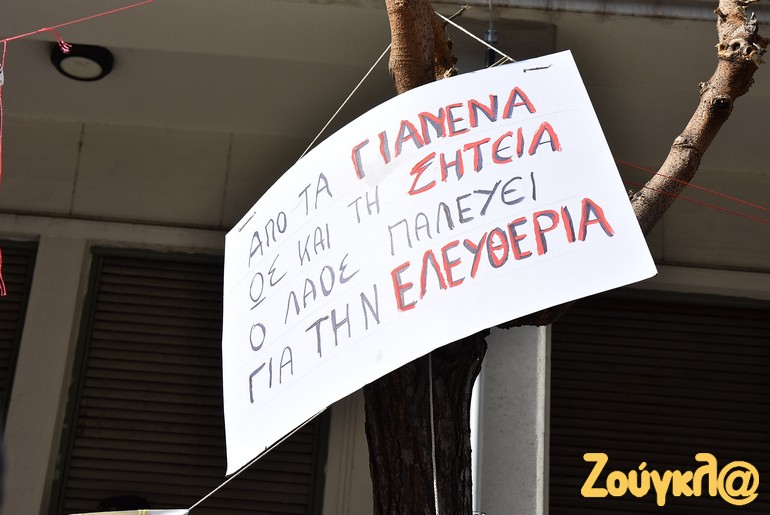 ΑΠΟ ΤΑ ΓΙΑΝΕΝΑ
ΩΣ ΚΑΙ ΤΗ ΣΗΤΕΙΑ
Ο ΛΑΟΣ ΠΑΛΕΥΕΙ
ΓΙΑ ΤΗΝ ΕΛΕΥΘΕΡΙΑ
Ζούγκλ@